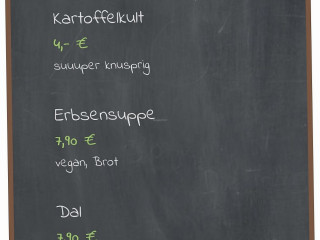 Kartoffelkult
4,- €
suuuper knusprig
Erbsensuppe
7,90 €
vegan, Brot
Dal
7,90 €